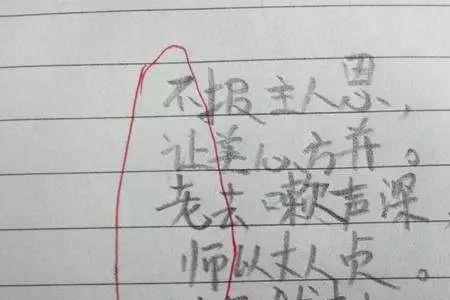 不报主人恩，
让羞心方弃。
老去嗽声深，
师以丈人贞。